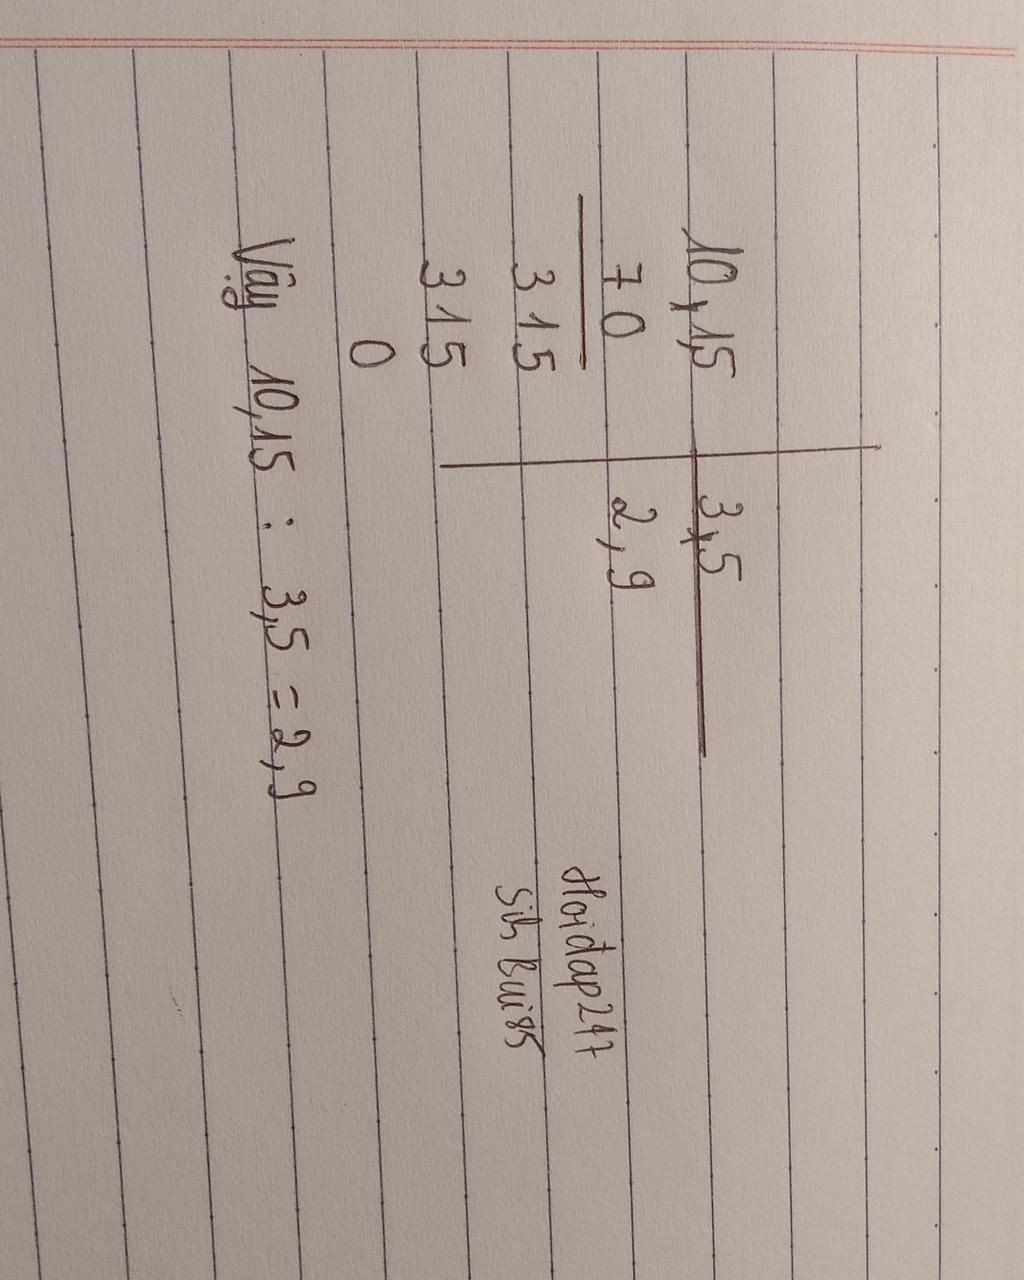 10,15 3,5
70 2,9
315
315
0
Vậy 10,15 : 3,5 = 2,9
Hoidap247
Sih Bui85